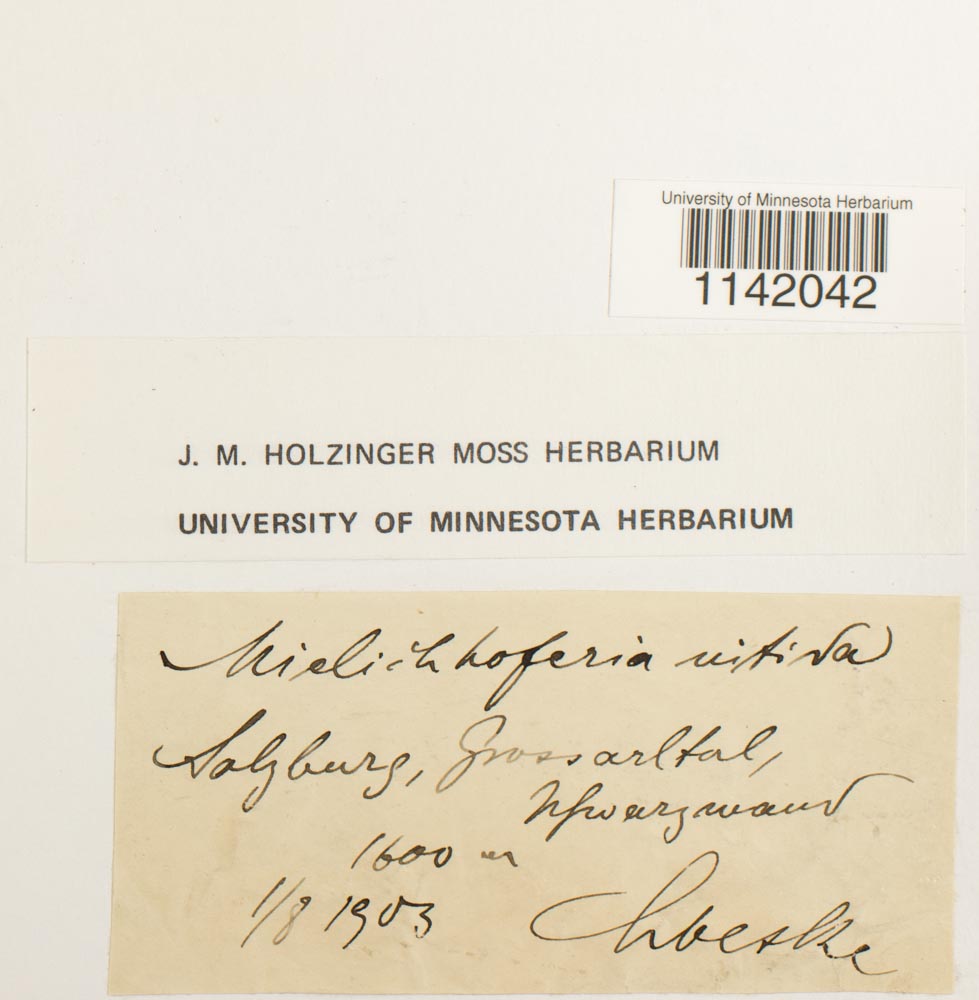 University of Minnesota Herbarium
1142042
J. M. HOLZINGER MOSS HERBARIUM
UNIVERSITY OF MINNESOTA HERBARIUM
Mielichhoferia nitida
Salzburg, Grossarltal,
Schwarzwand
1600 m
1/8 1903 Loeske